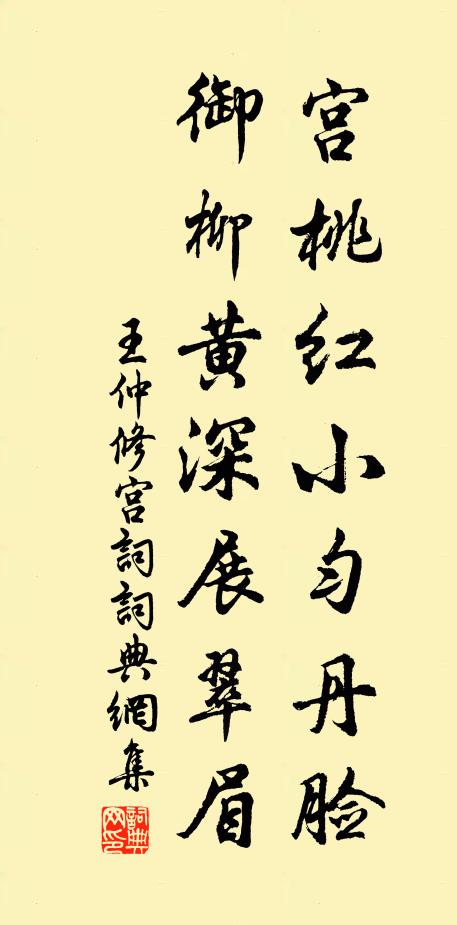 宫桃红小匀丹脸
御柳黄深展翠眉
王仲修宫詞詞典網集
詞典网印